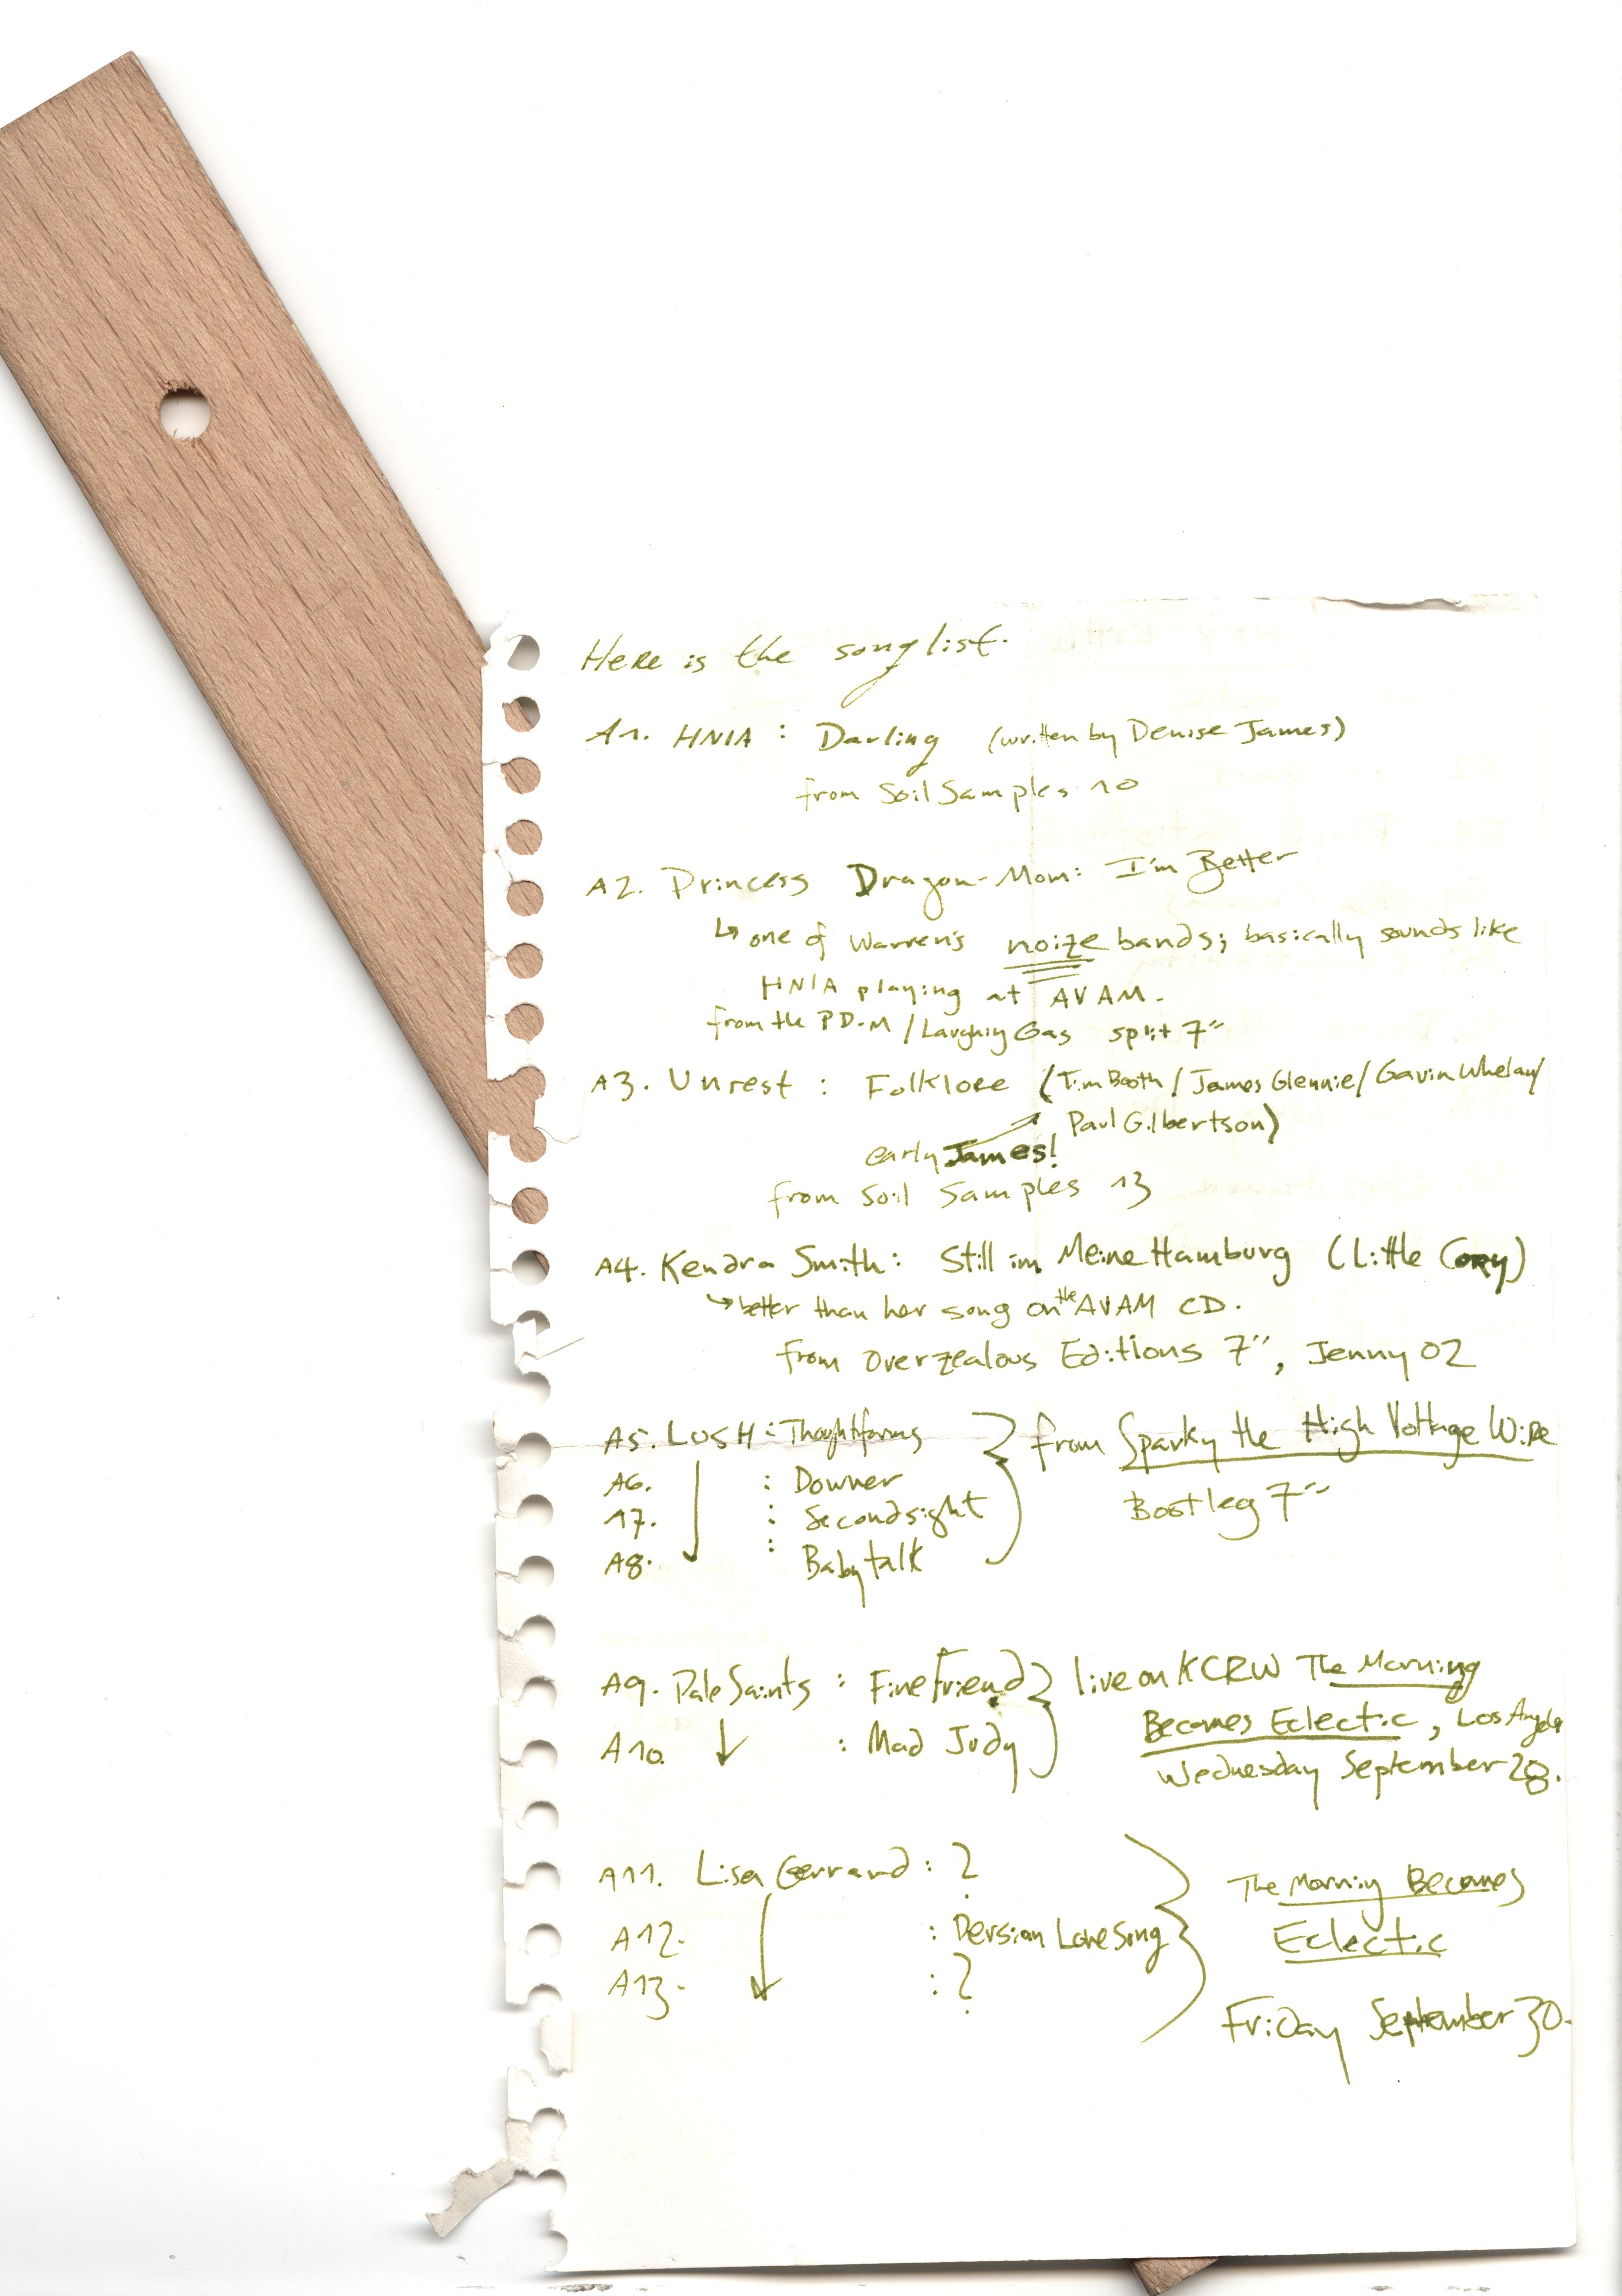 Here is the songlist.
A1. HNIA : Darling (written by Denise James)
from Soil Samples 10
A2. Princess Dragon-Mom: I'm Better
↳ one of Warren's noize bands; basically sounds like
HNIA playing at AVAM.
from the PD-M / Laughing Gas split 7"
A3. Unrest : Folklore (Tim Booth / James Glennie / Gavin Whelan/
Paul Gilbertson)
early James!
from Soil Samples 13
A4. Kendra Smith: Still in Meine Hamburg (Little Cory)
↳ better than her song on the AVAM CD.
from Overzealous Editions 7", Jenny 02
A5. LUSH : Thoughtforms } from Sparky the High Voltage Wire
A6. : Downer
A7. : Secondsight Bootleg 7"
A8. : Babytalk
A9. Pale Saints : Fine Friend } live on KCRW The Morning
A10. : Mad Judy Becomes Eclectic, Los Angeles
Wednesday September 28.
A11. Lisa Gerrard : ? } The Morning Becomes
A12. : Persian Love Song Eclectic
A13. : ?
Friday September 30.